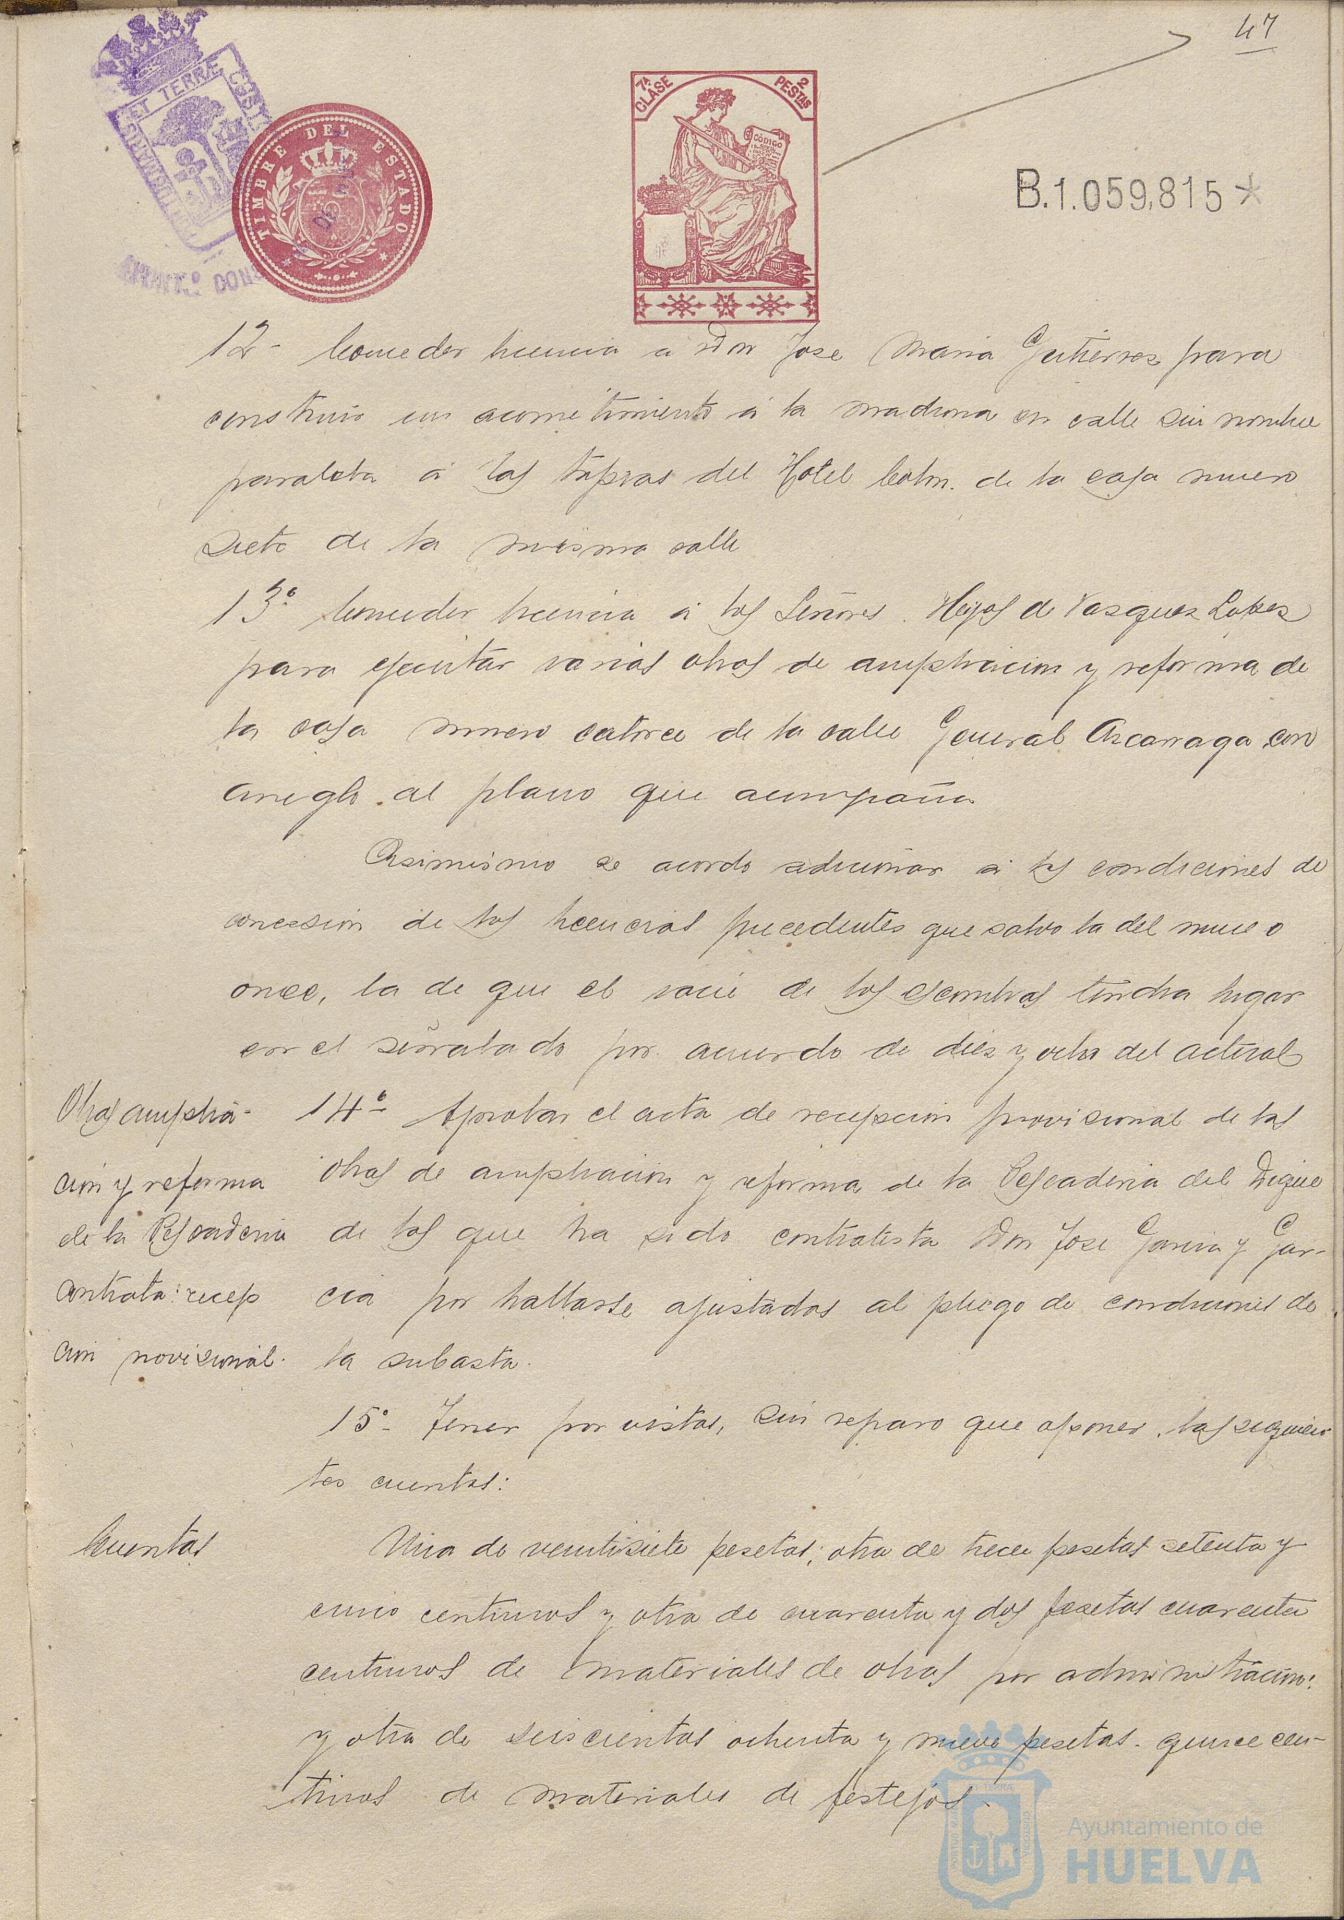 47
PORTUS MARIS ET TERRÆ CUSTODIA
TIMBRE DEL ESTADO
7ª CLASE
2 PESTAS
CÓDIGO
B.1.059,815*
12- Conceder licencia a Don Jose Maria Gutierrez para
construir un acometimiento á la madrona en calle sin nombre
paralela á las tapias del Hotel Colon. de la casa numero
siete de la misma calle
13º Conceder licencia á los Señores. Hijos de Vazquez Lopez
para ejecutar varias obras de ampliacion y reforma de
la casa numero catorce de la calle General Azcarraga, con
arreglo al plano que acompaña
Asimismo se acordo adicionar á las condiciones de
concesion de las licencias precedentes que salvo la del numero
once, la de que el vacie de los escombros tendra lugar
en el señalado por acuerdo de diez y ocho del actual
Obras amplia-
cion y reforma
de la Pescaderia
contrata: recep
cion provisional.
14º Aprobar el acta de recepcion provisional de las
obras de ampliacion y reforma de la Pescaderia del Dique
de las que ha sido contratista Don Jose Garcia y Gar-
cia por hallarse ajustadas al pliego de condiciones de
la subasta.
15º- Tener por vistas, sin reparo que oponer, las siguien
tes cuentas:
Cuentas
Una de veintisiete pesetas; otra de trece pesetas setenta y
cinco centimos y otra de cuarenta y dos pesetas cuarenta
centimos de materiales de obras por administracion:
y otra de seiscientas ochenta y nueve pesetas. quince cen-
timos de materiales de festejos.
Ayuntamiento de
HUELVA